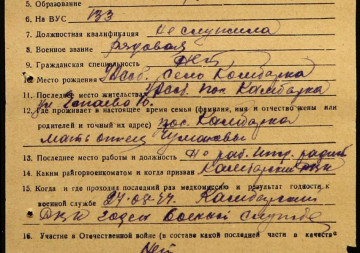 5. Образование
6. На ВУС 133
7. Должностная квалификация Не служила
8. Военное звание рядовая
9. Гражданская специальность нет
10. Место рождения село Камбарка
11. Последнее место жительства пос. Камбарка
ул Чапаева
12. Где проживает в настоящее время семья (фамилия, имя и отчество жены или
родителей и точный их адрес) пос. Камбарка
мать отец
13. Последнее место работы и должность Не раб.
14. Каким райгорвоенкоматом и когда призван Камбарским РВК
15. Когда и где проходил последний раз медкомиссию и результат годности к
военной службе Камбарский
РВК годен военной службе
16. Участие в Отечественной войне (в составе какой последней части в качеств
Нет